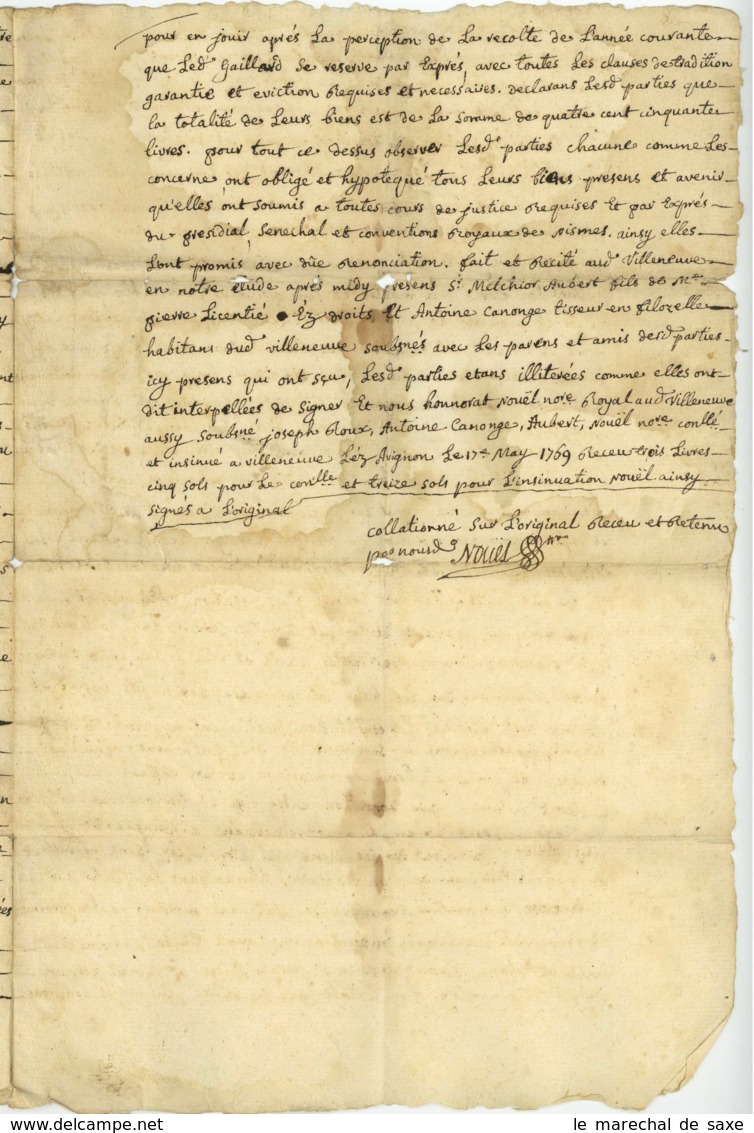 pour en jouir aprés La perception de La recolte de L'année courante
que Led. Gaillard se reserve par Exprés, avec toutes Les clauses de tradition
garantie et eviction Requises et necessaires. Declarans Lesd. parties que
la totalité de Leurs biens est de La somme de quatre cent cinquante
livres. pour tout ce dessus observer Lesd. parties chacune comme Les
concerne ont obligé et hypotequé tous Leurs biens presens et avenir
qu'elles ont soumis a toutes cours de justice Requises Et par Exprés
du presidial, Senechal et conventions Royaux de Nismes. ainsy elles
L'ont promis, avec düe Renonciation. fait et Recité aud. Villeneuve
en notre etude aprés midy presens Sr. Melchior Aubert fils de Me.
pierre Licentié Éz droits, Et Antoine Canonge tisseur en filozelle
habitans dud. villeneuve soubsnés avec Les parens et amis desd. parties
icy presens qui ont sçu, Lesd. parties etans illiterées comme elles ont
dit interpellées de signer Et nous honnorat Nouël nore. Royal aud. Villeneuve
aussy soubsné. joseph Roux, Antoine Canonge, Aubert, Nouël nore. conllé
et insinué a villeneuve Léz Avignon Le 17e. May 1769 Receu trois Livres
cinq sols pour Le conlle et treize sols pour L'insinuation Nouël ainsy
signés a L'original
collationné sur L'original Receu et Retenu
par nousd. Nouël nre
le marechal de saxe